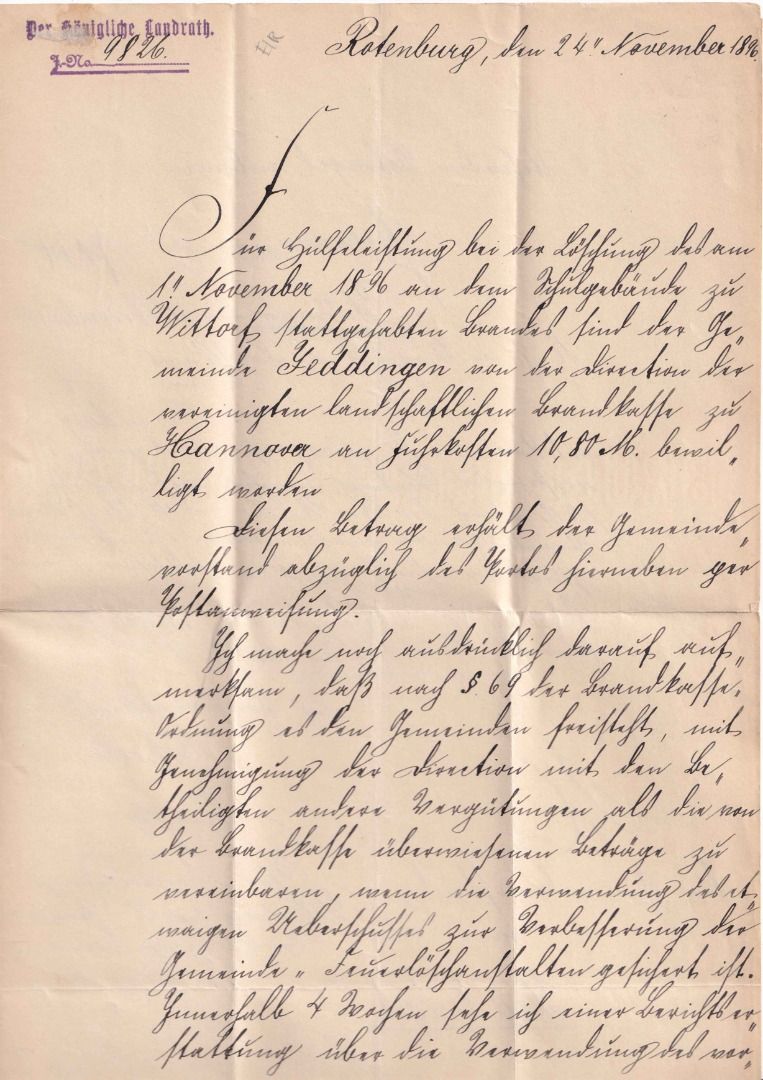 Der Königliche Landrath.
J.-No 9826.
E/R
Rotenburg, den 24" November 1896.
Für Hülfeleistung bei der Löschung des am
1" November 1896 an dem Schulgebäude zu
Wittorf stattgehabten Brandes sind der Ge„
meinde Jeddingen von der Direction der
vereinigten landschaftlichen Brandkasse zu
Hannover an Fuhrkosten 10,80 M. bewil„
ligt worden
Diesen Betrag erhält der Gemeinde„
vorstand abzüglich des Portos hierneben per
Postanweisung.
Ich mache noch ausdrücklich darauf auf„
merksam, daß nach §. 69 der Brandkasse„
Ordnung es den Gemeinden freisteht, mit
Genehmigung der Direction mit den Be„
theiligten andere Vergütungen als die von
der Brandkasse überwiesenen Beträge zu
vereinbaren, wenn die Verwendung des et„
waigen Ueberschusses zur Verbesserung der
Gemeinde „ Feuerlöschanstalten gesichert ist.
Innerhalb 4 Wochen sehe ich einer Berichtser„
stattung über die Verwendung des vor„